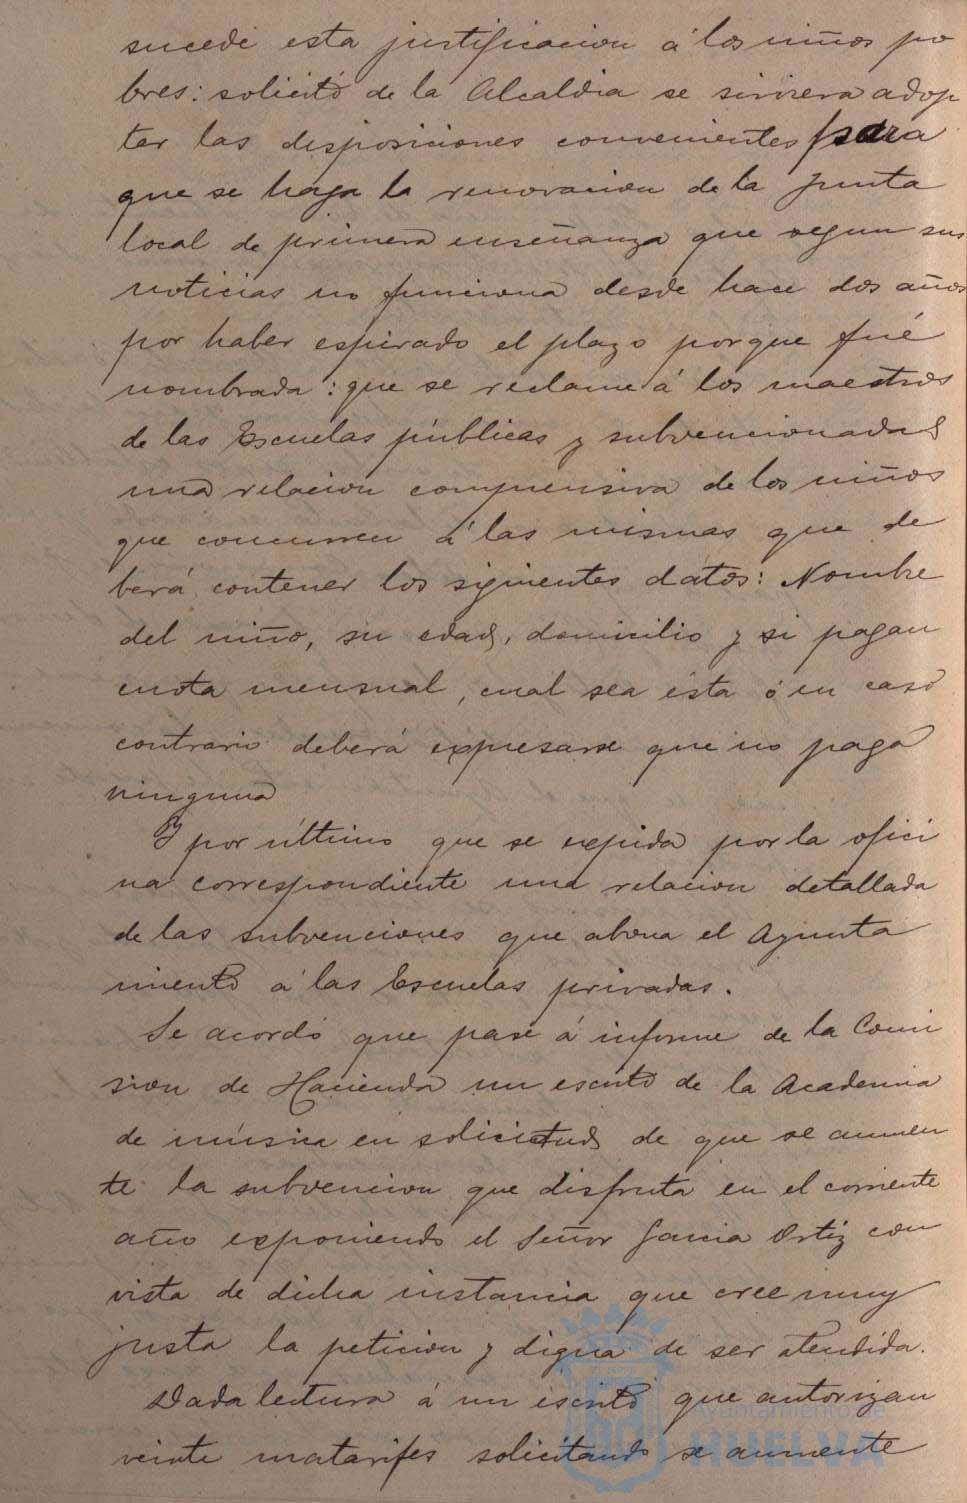 sucede esta justificacion á los niños po
bres: solicitó de la Alcaldia se sirviera adop
tar las disposiciones convenientes para
que se haga la renovacion de la Junta
local de primera enseñanza que segun sus
noticias no funciona desde hace dos años
por haber espirado el plazo porque fué
nombrada: que se reclame á los maestros
de las Escuelas públicas y subvencionadas
una relacion comprensiva de los niños
que concurren á las mismas que de
berá contener los siguientes datos: Nombre
del niño, su edad, domicilio y si pagan
cuota mensual, cual sea ésta ó en caso
contrario deberá expresarse que no paga
ninguna
Y por último que se expida por la ofici
na correspondiente una relacion detallada
de las subvenciones que abona el Ayunta
miento á las Escuelas privadas.
Se acordó que pase á informe de la Comi
sion de Hacienda un escrito de la Academia
de música en solicitud de que se aumen
te la subvencion que disfruta en el corriente
año exponiendo el Señor Garcia Ortiz con
vista de dicha instancia que cree muy
justa la peticion y digna de ser atendida.
Dada lectura á un escrito que autorizan
veinte matarifes solicitando se aumente
Ayuntamiento de
HUELVA